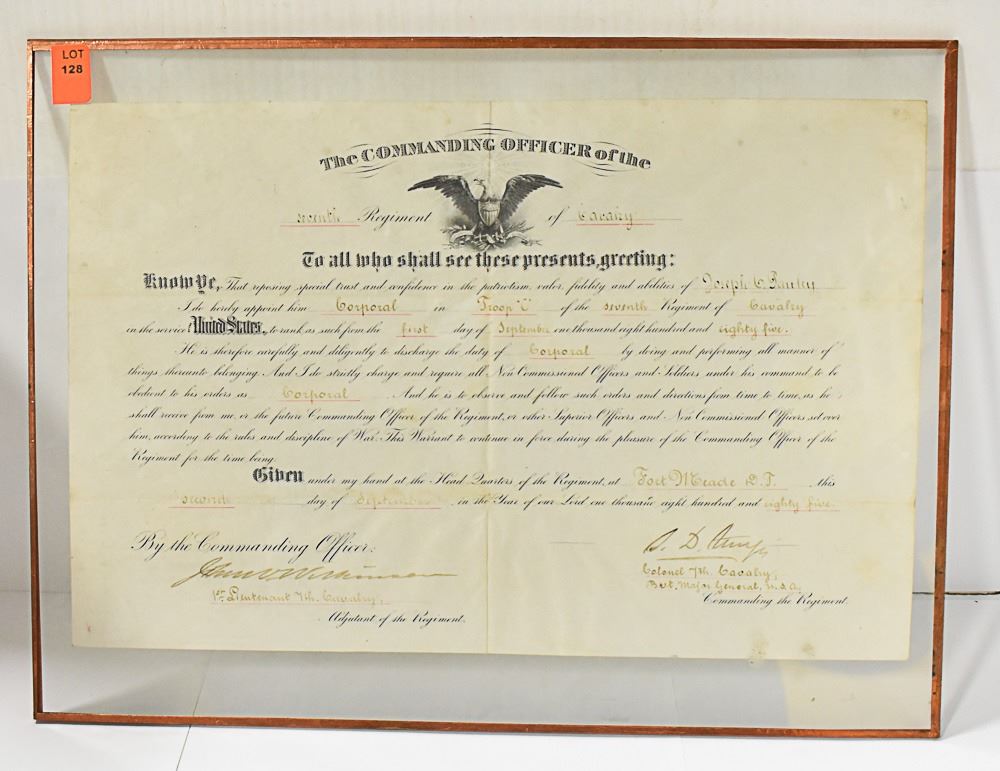 LOT
128
The COMMANDING OFFICER of the
seventh Regiment of Cavalry
To all who shall see these presents, greeting:
Know Ye, That reposing special trust and confidence in the patriotism, valor, fidelity and abilities of Joseph C.
I do hereby appoint him Corporal in Troop "C" of the seventh Regiment of Cavalry
in the service United States, to rank as such from the first day of September one thousand eight hundred and eighty five.
He is therefore carefully and diligently to discharge the duty of Corporal by doing and performing all manner of
things thereunto belonging. And I do strictly charge and require all Non Commissioned Officers and Soldiers under his command to be
obedient to his orders as Corporal And he is to observe and follow such orders and directions from time to time, as he
shall receive from me, or the future Commanding Officer of the Regiment, or other Superior Officers and Non Commissioned Officers set over
him, according to the rules and discipline of War. This Warrant to continue in force during the pleasure of the Commanding Officer of the
Regiment for the time being.
Given under my hand at the Head Quarters of the Regiment, at Fort Meade D.T. this
second day of September in the Year of our Lord one thousand eight hundred and eighty five.
By the Commanding Officer:
S. D. Sturgis
Colonel 7th. Cavalry,
Bvt. Major General, U.S.A.
Commanding the Regiment.
1st. Lieutenant 7th. Cavalry,
Adjutant of the Regiment.